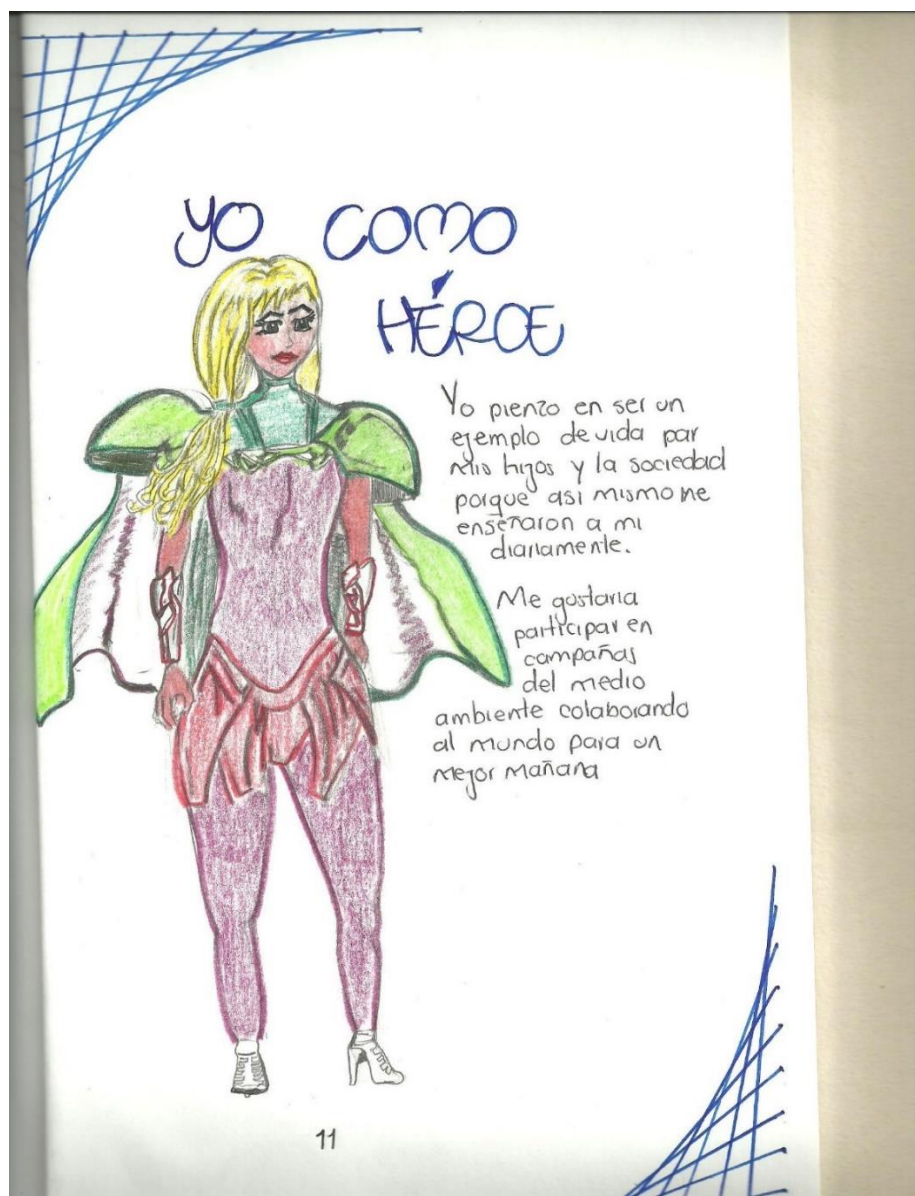 YO COMO
HÉROE
Yo pienzo en ser un
ejemplo de vida par
mis hijos y la sociedad
porque asi mismo me
enseñaron a mi
diariamente.
Me gustaria
participar en
campañas
del medio
ambiente colaborando
al mundo para un
mejor mañana
11